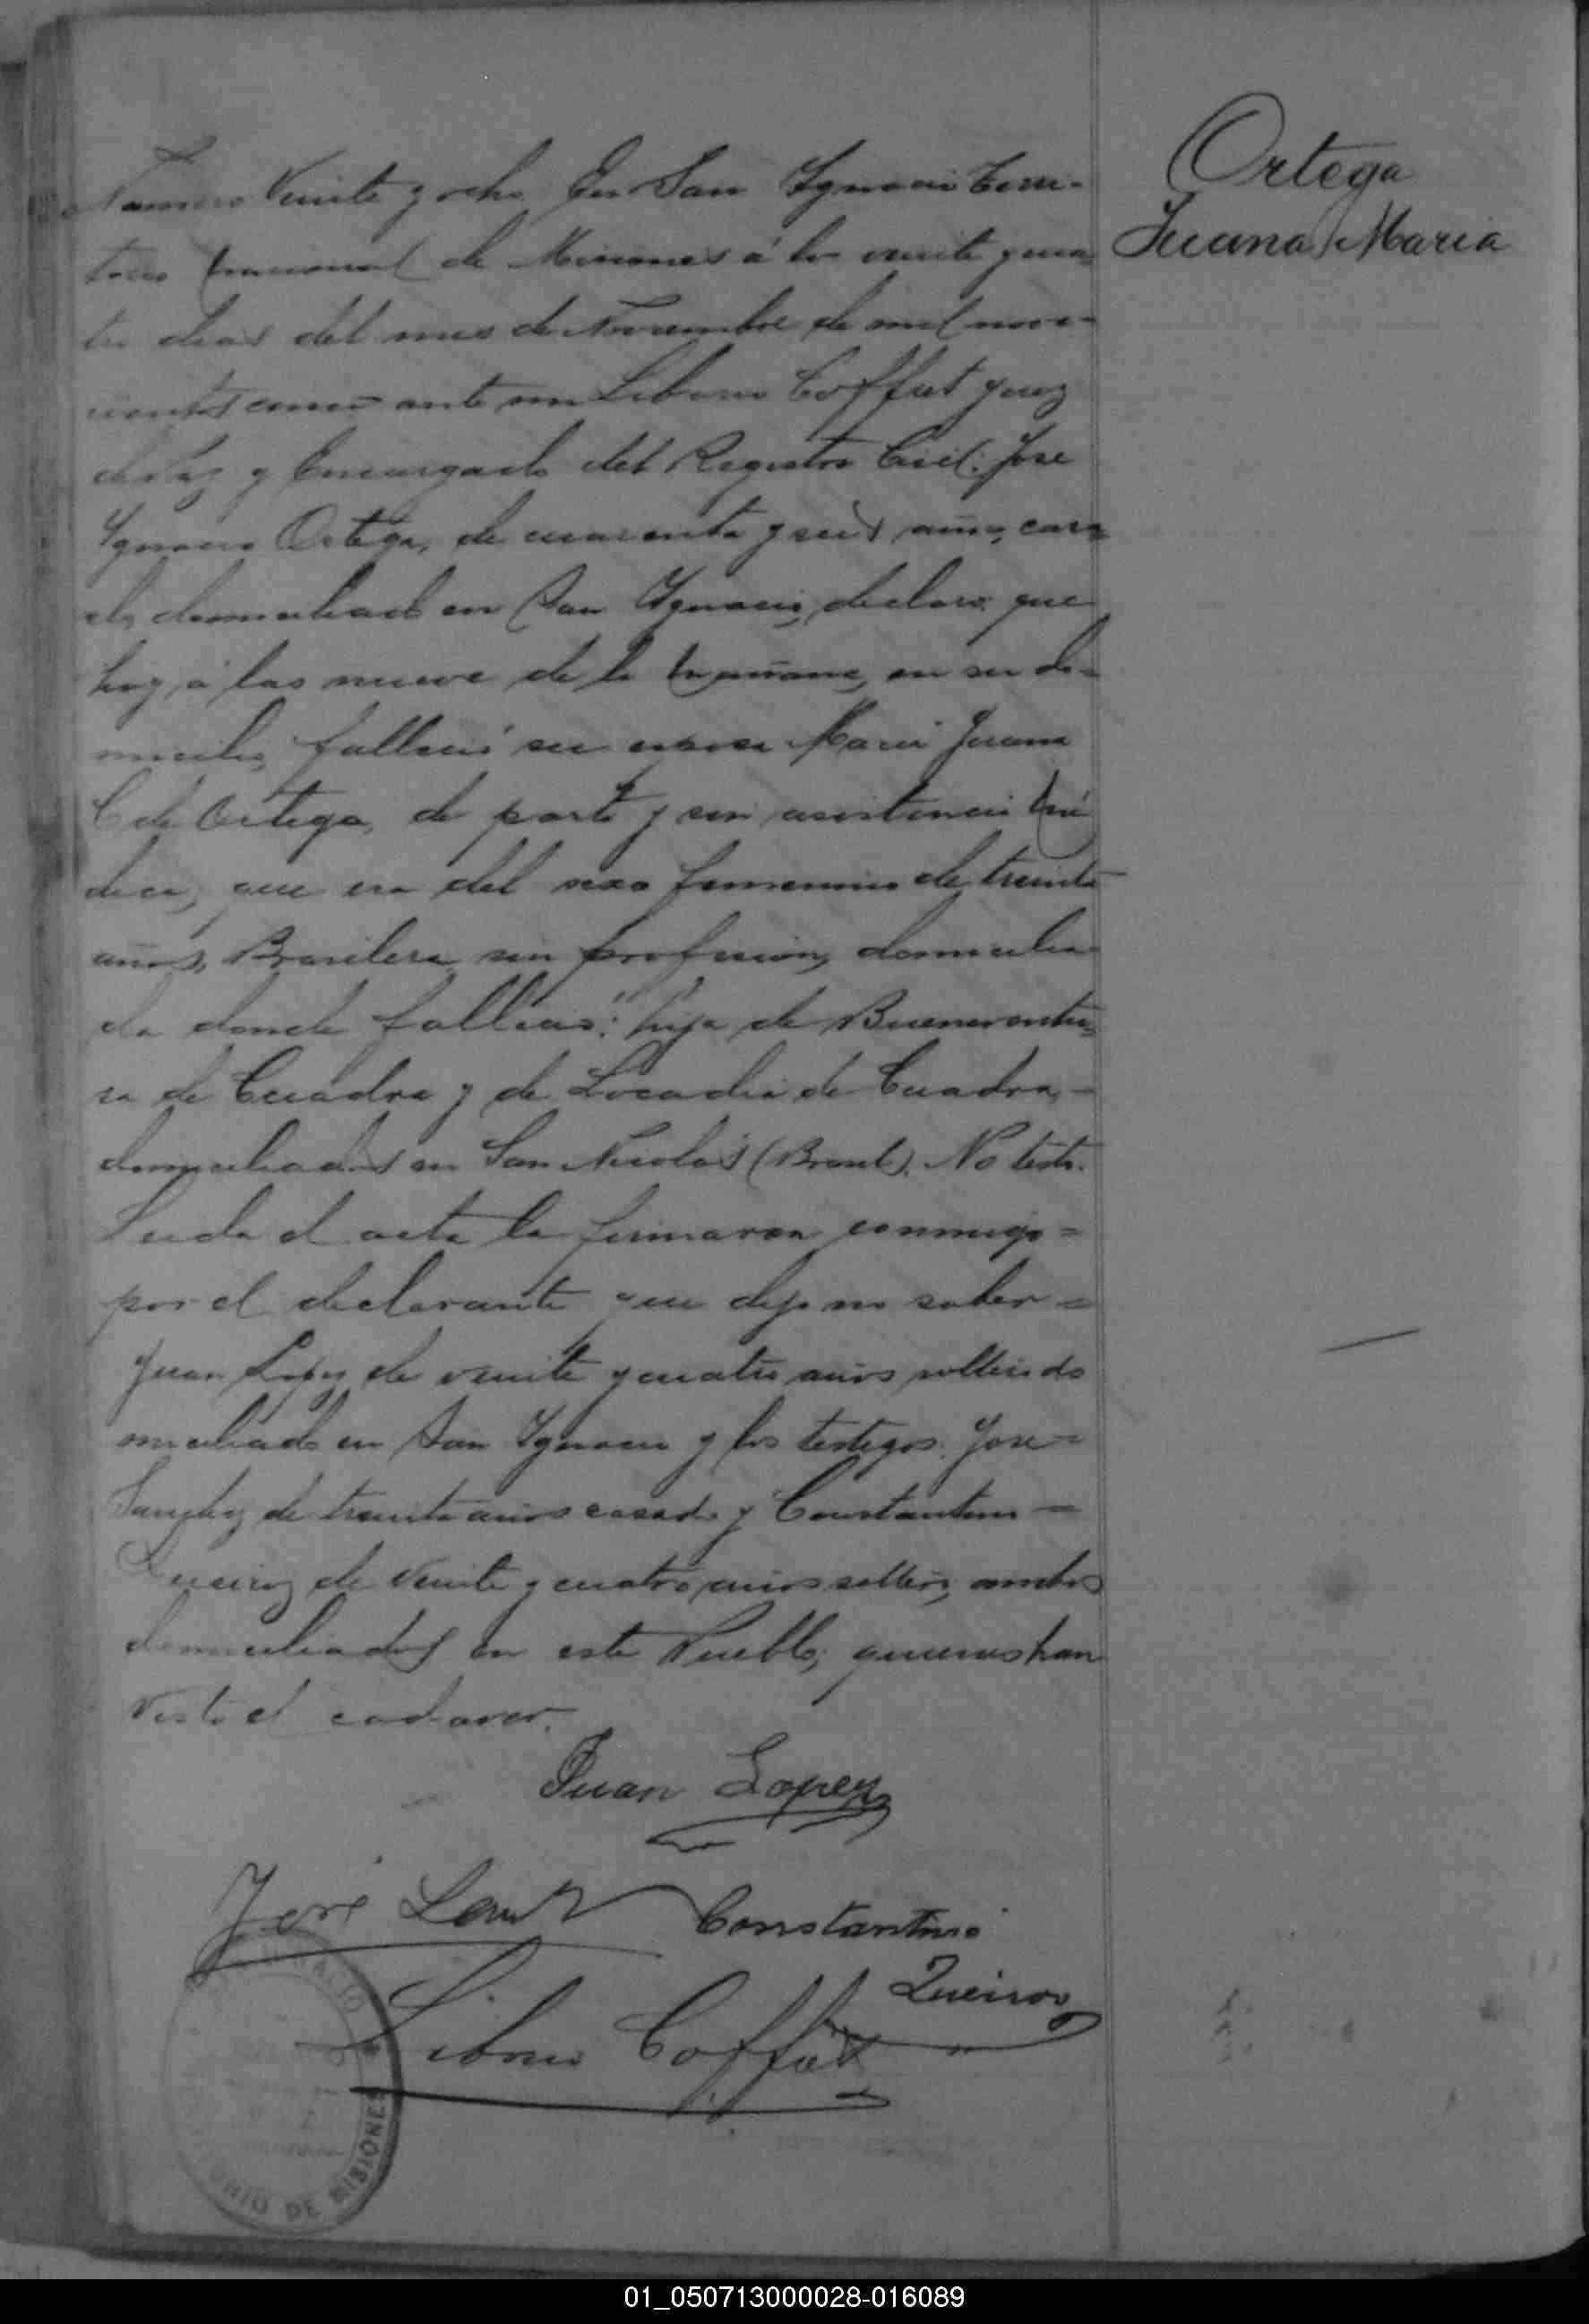 Ortega
Juana Maria
Numero Veinte y ocho. En San Ignacio Terri-
torio Nacional de Misiones á los veinte y cua-
tro dias del mes de Noviembre de mil nove-
cientos ante mi Liborio Coffat Juez
de Paz y Encargado del Registro Civil: Jose
Ignacio Ortega, de cuarenta y seis años, casa-
do, domiciliado en San Ignacio, declaro que
hoy á las nueve de la mañana, en su do-
micilio, falleció su esposa Maria Juana
C de Ortega, de parto y sin asistencia mé
dica, que era del sexo femenino de treinta
años, Brasilera, sin profesion, domicilia-
da donde falleció: hija de Buenaventu-
ra de Cuadra y de Locadia de Cuadra,-
domiciliados en San Nicolás (Brasil). No testó.
Leida el acta la firmaron conmigo =
por el declarante que dijo no saber =
Juan Lopez de veinte y cuatro años soltero do
miciliado en San Ignacio y los testigos. Jose =
Sanchez de treinta años casado y Constantino -
Queiroz de veinte y cuatro años soltero, ambos
domiciliados en este Pueblo, quienes han
visto el cadaver.
Juan Lopez
José
Constantino
Queiroz
Liborio Coffat
RIO DE MISIONES
01_050713000028-016089